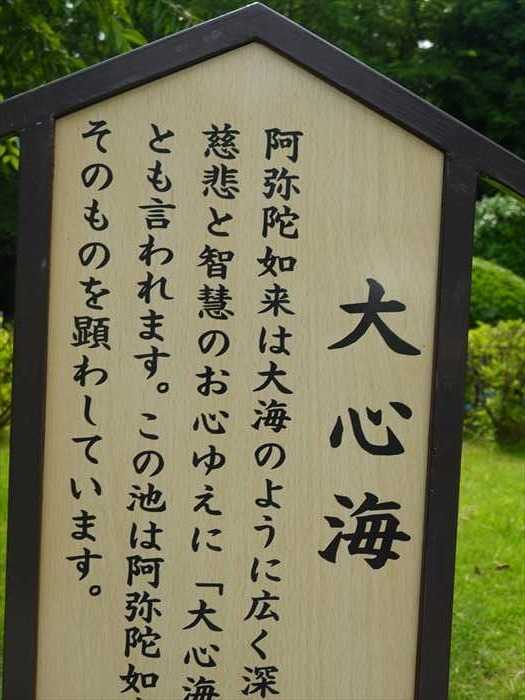 大心海
阿弥陀如来は大海のように広く深
慈悲と智慧のお心ゆえに「大心海
とも言われます。この池は阿弥陀如
そのものを顕わしています。